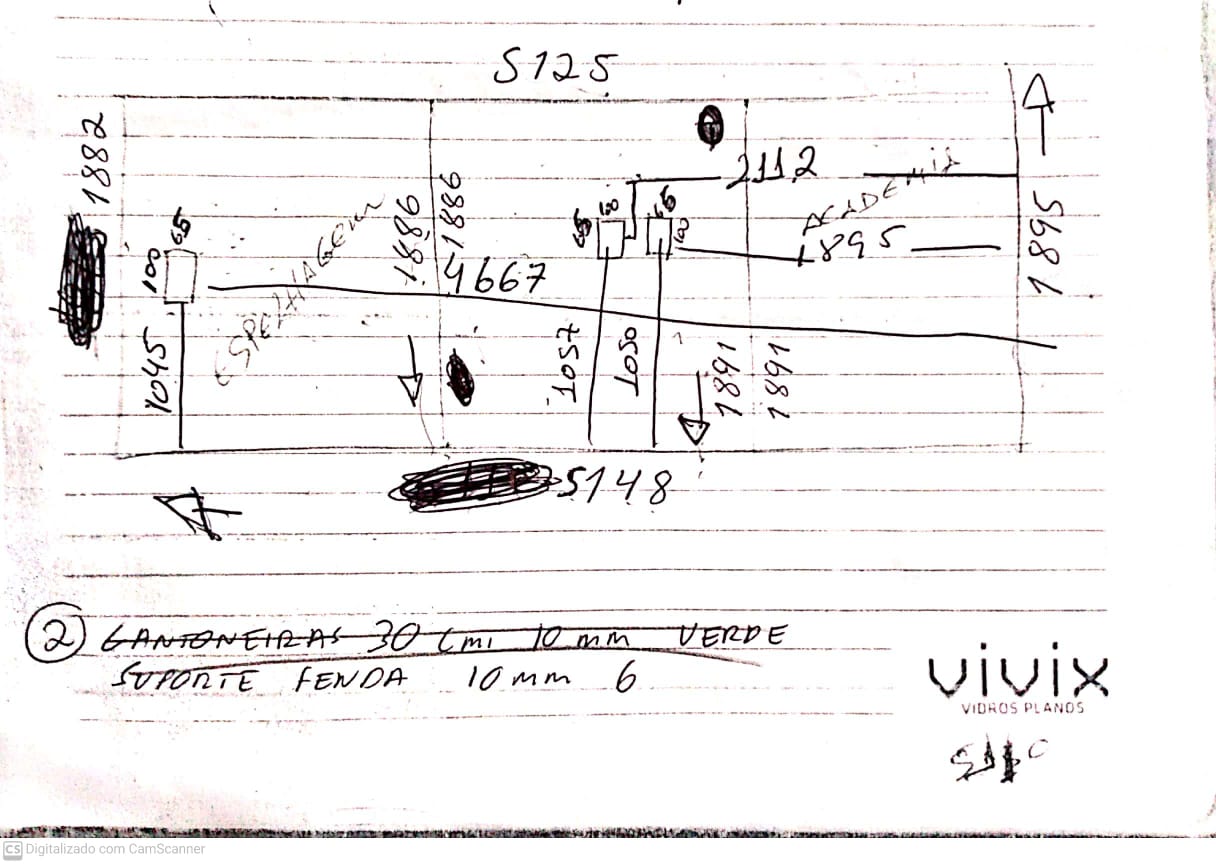 5125
1882
2112
ACADEMIA
1886
1886
65
100
65
100
65
100
1895
1895
ESPELHAGEM
4667
1045
1057
1050
1891
1891
5148
2 CANTONEIRAS 30 Cmi 10 mm VERDE
SUPORTE FENDA 10 mm 6
vivix
VIDROS PLANOS
CS Digitalizado com CamScanner